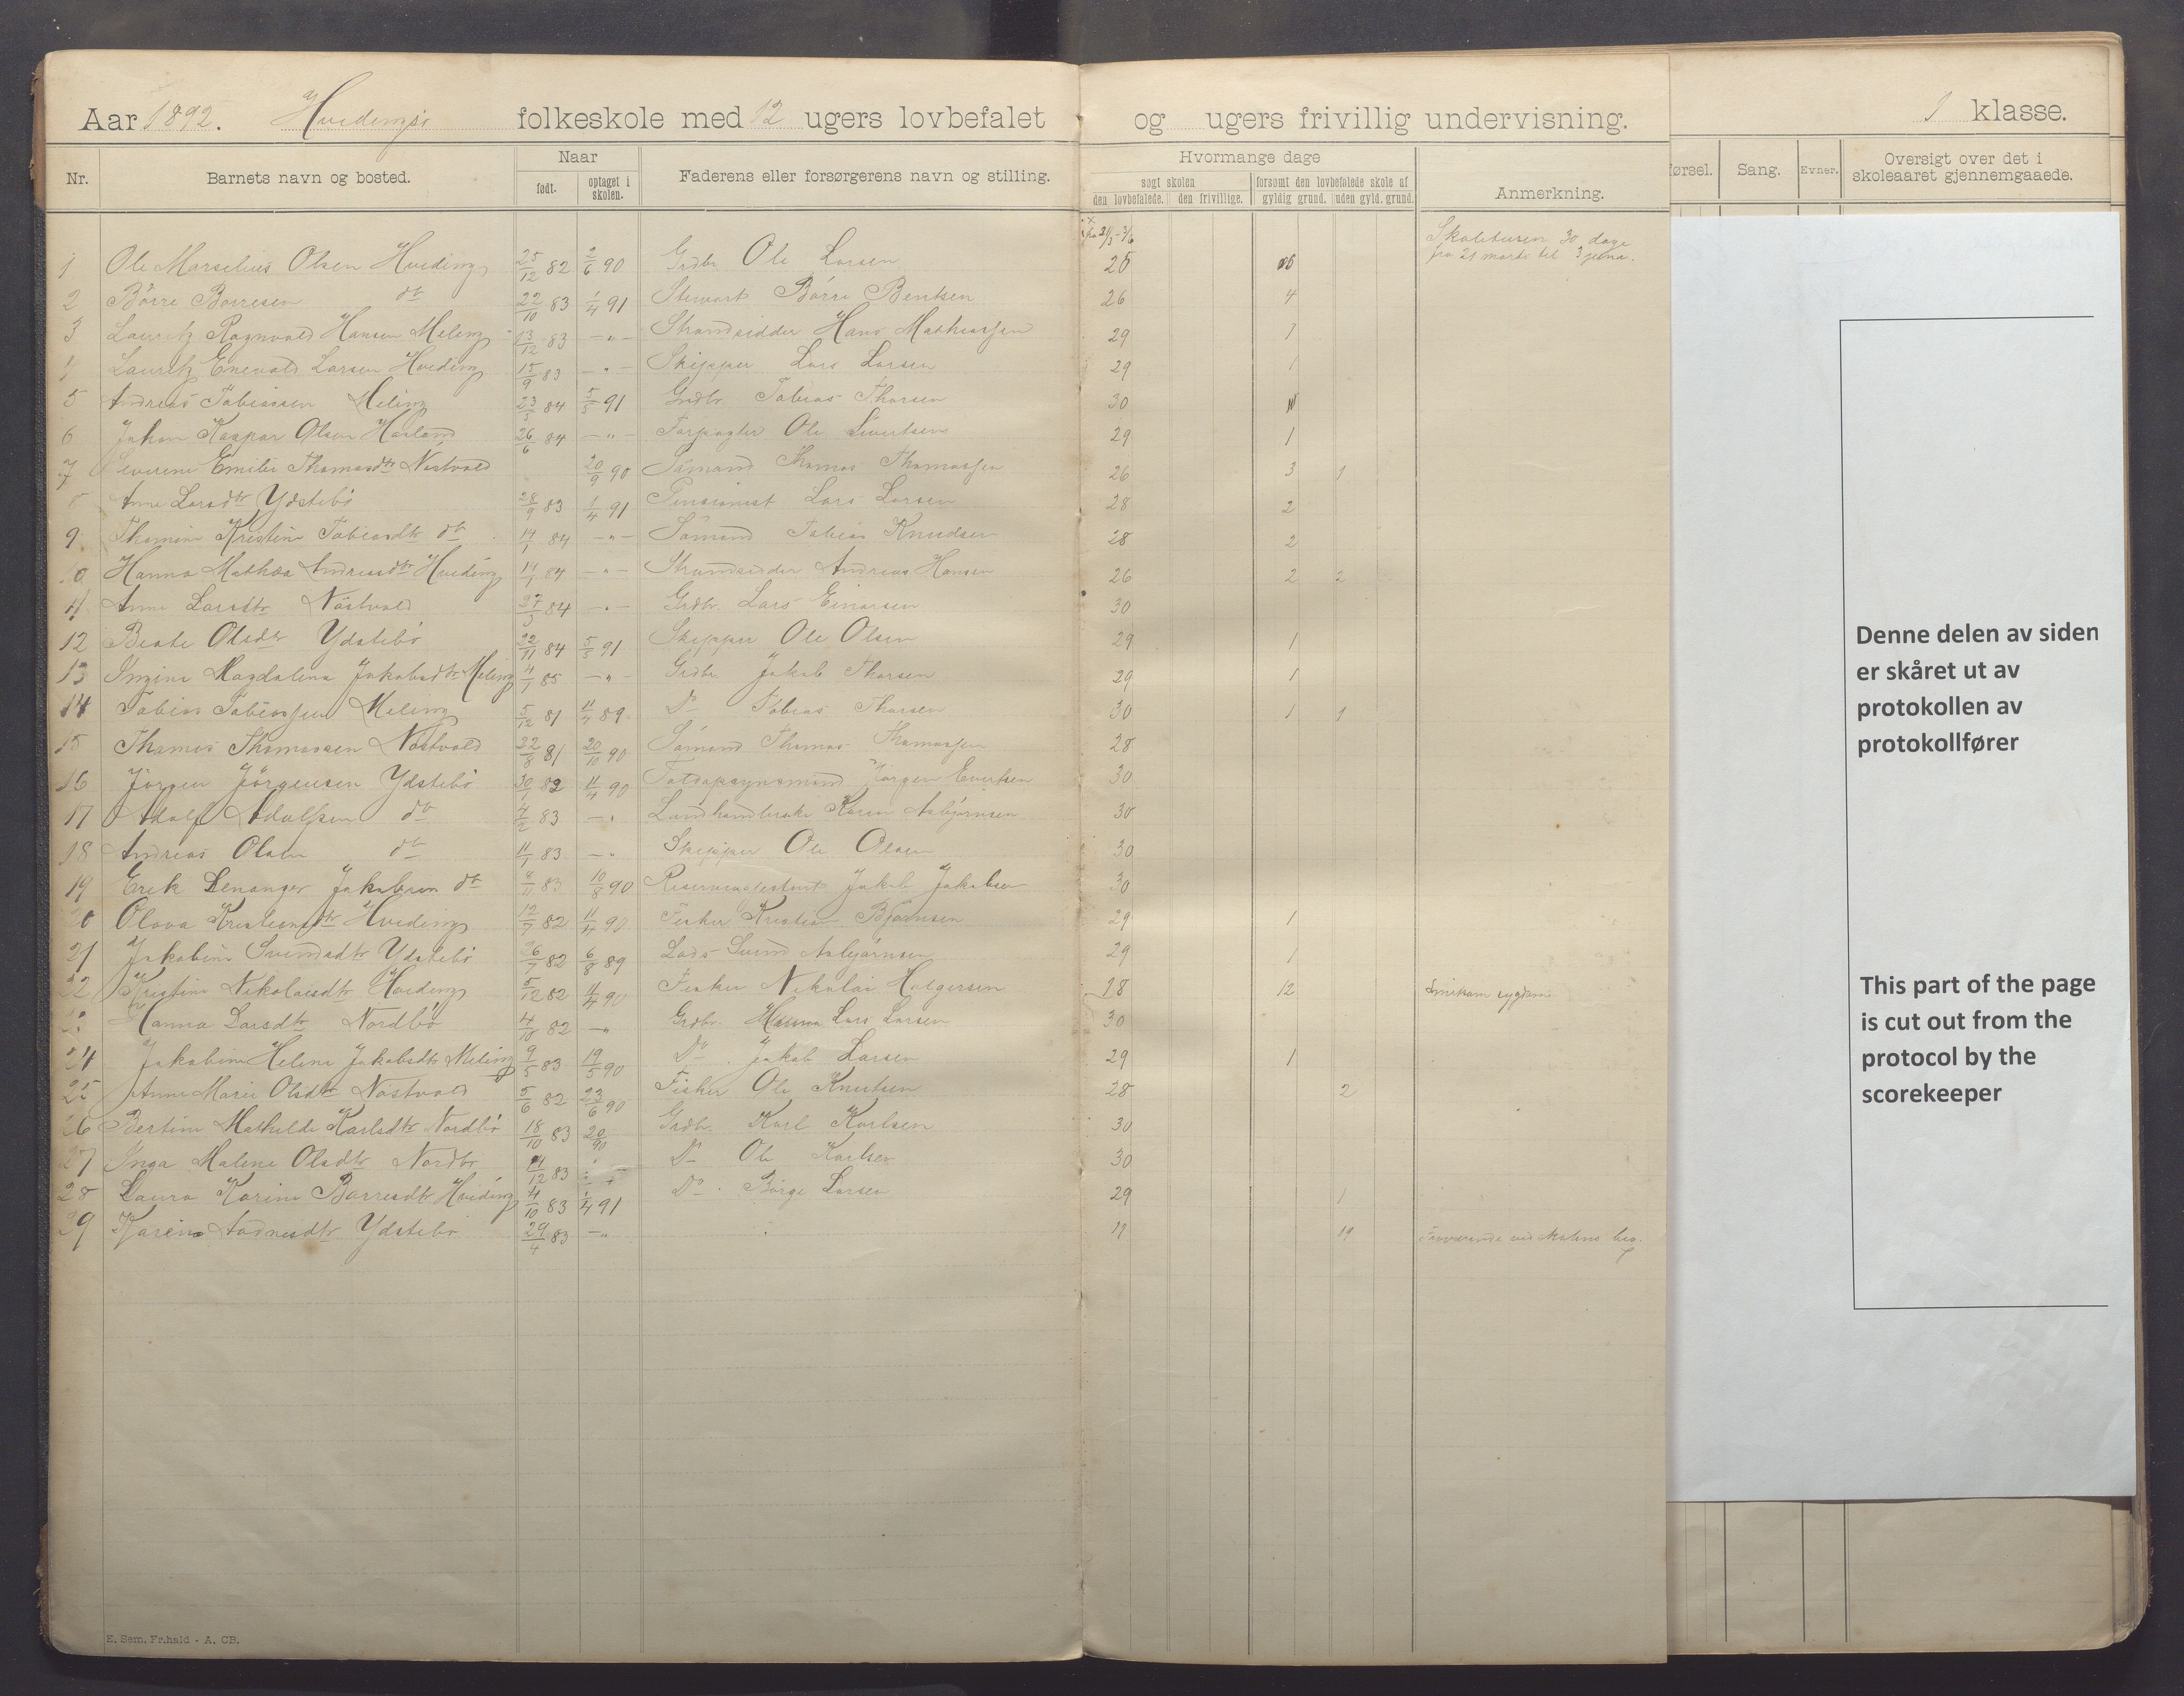 Aar 1892. Hvidingsö folkeskole med 12 ugers lovbefalet og ugers frivillig undervisning. 1 klasse.
Nr. Barnets navn og bosted. Naar født. optaget i skolen. Faderens eller forsørgerens navn og stilling. Hvormange dage søgt skolen den lovbefalede. den frivillige. forsømt den lovbefalede skole af gyldig grund. uden gyld. grund. Anmerkning. Sang. Evner. Oversigt over det i skoleaaret gjennemgaaede.
fra 21/3 - 3/6 30 dage
fra 21 marts til 3 juni.
1 Ole Marselius Olsen Hviding 25/12 82 2/6 90 Grdbr. Ole Larsen
2 Börre Börresen do 22/10 83 1/4 91 Stewart Börre Bentsen 26 4
3 Lauritz Ragnvald Hansen Meling 13/12 83 — " — Strandsidder Hans Mathiassen 29 1
4 Lauritz Enevald Larsen Hviding 15/9 83 — " — Skipper Lars Larsen 29 1
5 Andreas Tobiassen Meling 84 5/5 91 Grdbr. Tobias Thorsen 30
6 Johan Kaspar Olsen Harland 26/6 84 — " — Forpagter Ole Sivertsen 29 1
7 Severine Emilie Thomasdtr Nöstvold 20/9 90 Sömand Thomas Thomassen 26 3 1
8 Anne Larsdtr Ydstebö 28/9 83 1/4 91 Pensionist Lars Larsen 28 2
9 Thomine Kristine Tobiasdtr do 14/1 84 — " — Sömand Tobias Knudsen 28 2
10 Hanna Mathea Andreasdtr Hviding 14/1 84 — " — Strandsidder Andreas Hansen 26 2 2
11 Anne Larsdtr Nöstvold 27/5 84 — " — Grdbr. Lars Einarsen 30
12 Beate Olsdtr Ydstebö 22/11 84 5/5 91 Skipper Ole Olsen 29 1
13 Ingine Magdalena Jakobsdtr Meling 4/1 85 — " — Grdbr. Jakob Thorsen 29 1
14 Tobias Tobiassen Meling 5/12 81 11/4 89 Do Tobias Thorsen 30 1 1
15 Thomas Thomassen Nöstvold 81 20/10 90 Sömand Thomas Thomassen 28
16 Jörgen Jörgensen Ydstebö 30/1 82 11/4 90 Jörgen Evertsen 30
17 Adolf Adolfsen do 4/2 83 — " Landhandlerske Karen Asbjörnsen 30
18 Andreas Olsen do 11/1 83 — " Skipper Ole Olsen 30
19 Erik Jakobsen do 8/11 83 10/8 90 Jakob Jakobsen 30
20 Olava Kristiansdtr Hviding 12/7 82 11/4 90 Fisker Kristian Björnsen 29 1
21 Jakobine Svendsdtr Ydstebö 26/7 82 6/8 89 Lods Svend Asbjörnsen 29 1
22 Kristine Nikolaisdtr Hviding 5/12 82 11/4 90 Fisker Nikolai Holgersen 18 12 Smitsom sygdom
23 Hanna Larsdtr Nordbö 4/10 82 — " Grdbr. Lars Larsen 30
24 Jakobine Helene Jakobsdtr Meling 9/5 83 19/5 90 Do. Jakob Larsen 29 1
25 Anne Marie Olsdtr Nöstvold 5/6 82 23/6 90 Fisker Ole Knutsen 28 2
26 Bertine Mathilde Karlsdtr Nordbö 18/10 83 20/90 Grdbr. Karl Karlsen 30
27 Inga Malene Olsdtr Nordbö 83 Do Ole Karlsen 30
28 Laura Karine Börresdtr Hviding 4/10 83 1/4 91 Do. Börge Larsen 29 1
29 Karine Ydstebö 29/4 83 — " 11 19 Fraværende ved skolens beg.
E. Sem. Fr.hald - A. CB.
Denne delen av siden
er skåret ut av
protokollen av
protokollfører
This part of the page
is cut out from the
protocol by the
scorekeeper